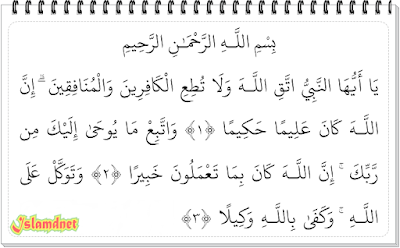 بِسْمِ اللَّـهِ الرَّحْمَـٰنِ الرَّحِيمِ
يَا أَيُّهَا النَّبِيُّ اتَّقِ اللَّـهَ وَلَا تُطِعِ الْكَافِرِينَ وَالْمُنَافِقِينَ ۗ إِنَّ
اللَّـهَ كَانَ عَلِيمًا حَكِيمًا ﴿١﴾ وَاتَّبِعْ مَا يُوحَىٰ إِلَيْكَ مِن
رَّبِّكَ ۚ إِنَّ اللَّـهَ كَانَ بِمَا تَعْمَلُونَ خَبِيرًا ﴿٢﴾ وَتَوَكَّلْ عَلَى
اللَّـهِ ۚ وَكَفَىٰ بِاللَّـهِ وَكِيلًا ﴿٣﴾
Islamdnet